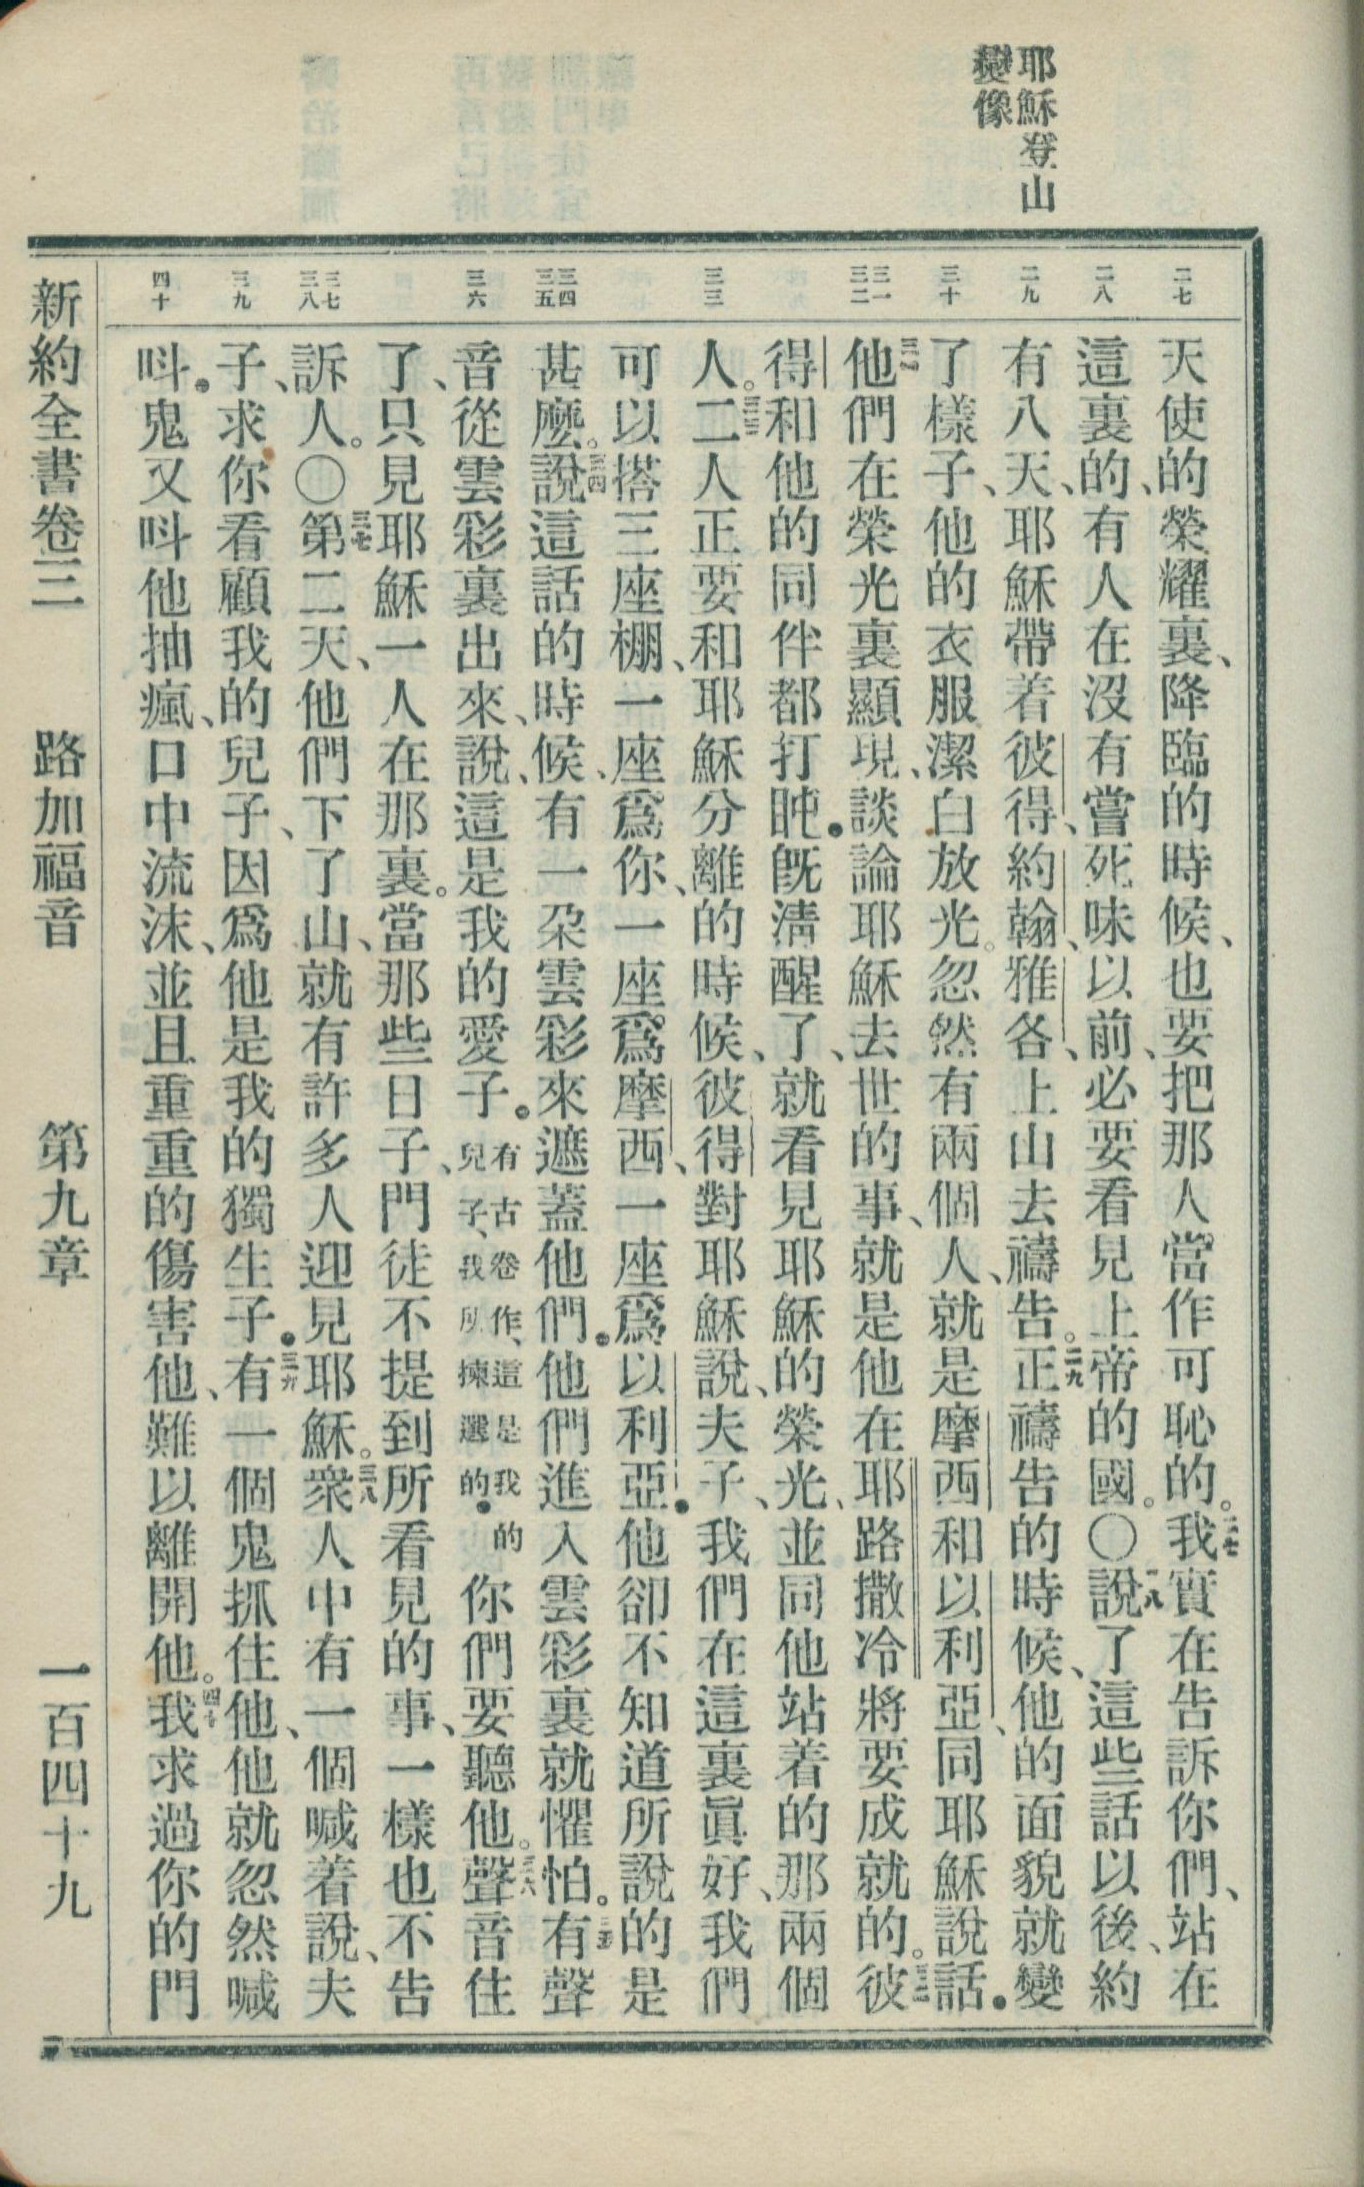 耶穌登山
變像
二七
二八
二九
三十
三一
三二
三三
三四
三五
三六
三七
三八
三九
四十
天使的榮耀裏、降臨的時候、也要把那人當作可恥的。二七我實在告訴你們、站在
這裏的、有人在沒有嘗死味以前、必要看見上帝的國。〇二八說了這些話以後、約
有八天、耶穌帶着彼得、約翰、雅各、上山去禱告。二九正禱告的時候、他的面貌就變
了樣子、他的衣服潔白放光。忽然有兩個人、就是摩西和以利亞、同耶穌說話.
三一他們在榮光裏顯現、談論耶穌去世的事、就是他在耶路撒冷將要成就的。三二彼
得和他的同伴都打盹.旣淸醒了、就看見耶穌的榮光、並同他站着的那兩個
人。三三二人正要和耶穌分離的時候、彼得對耶穌說、夫子、我們在這裏眞好、我們
可以搭三座棚、一座爲你、一座爲摩西、一座爲以利亞.他卻不知道所說的是
甚麼。三四說這話的時候、有一朶雲彩來遮蓋他們.他們進入雲彩裏就懼怕。三五有聲
音從雲彩裏出來、說、這是我的愛子.有古卷作、這是我的兒子、我所揀選的.你們要聽他。三六聲音住
了、只見耶穌一人在那裏。當那些日子、門徒不提到所看見的事、一樣也不告
訴人。〇三七第二天、他們下了山、就有許多人迎見耶穌。三八衆人中有一個喊着說、夫
子、求你看顧我的兒子、因爲他是我的獨生子.三九有一個鬼抓住他、他就忽然喊
呌.鬼又呌他抽瘋、口中流沫、並且重重的傷害他、難以離開他。四十我求過你的門
新約全書卷三　路加福音　第九章　一百四十九